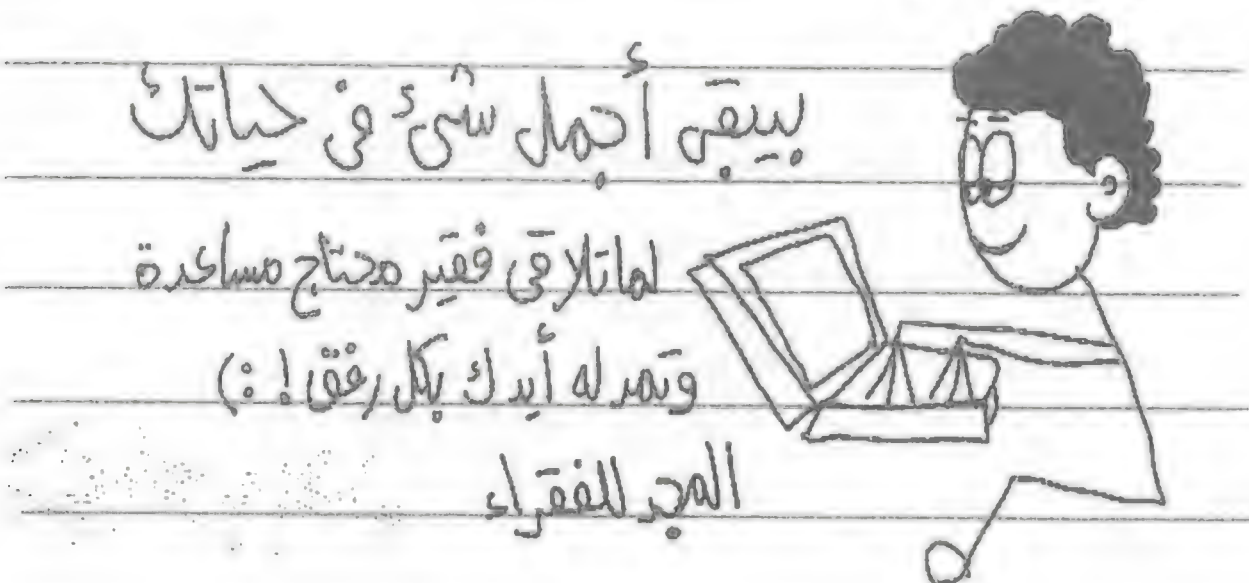 بيبقى أجمل شئ في حياتك
لما تلاقى فقير محتاج مساعدة
وتمد له أيدك بكل رفق ! :)
المجد للفقراء